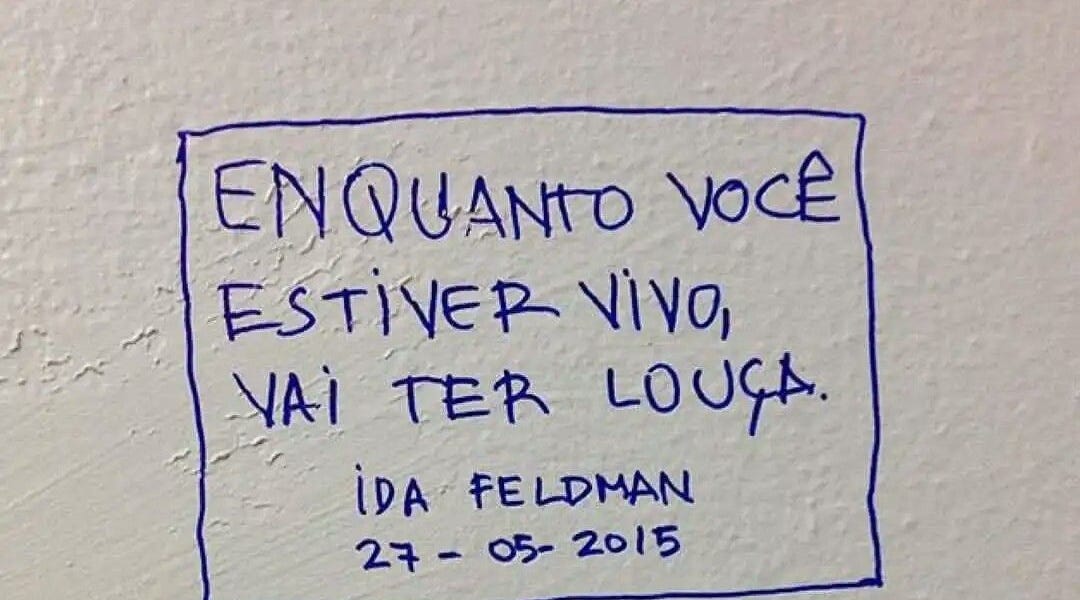 ENQUANTO VOCÊ
ESTIVER VIVO,
VAI TER LOUÇA.
IDA FELDMAN
27-05-2015